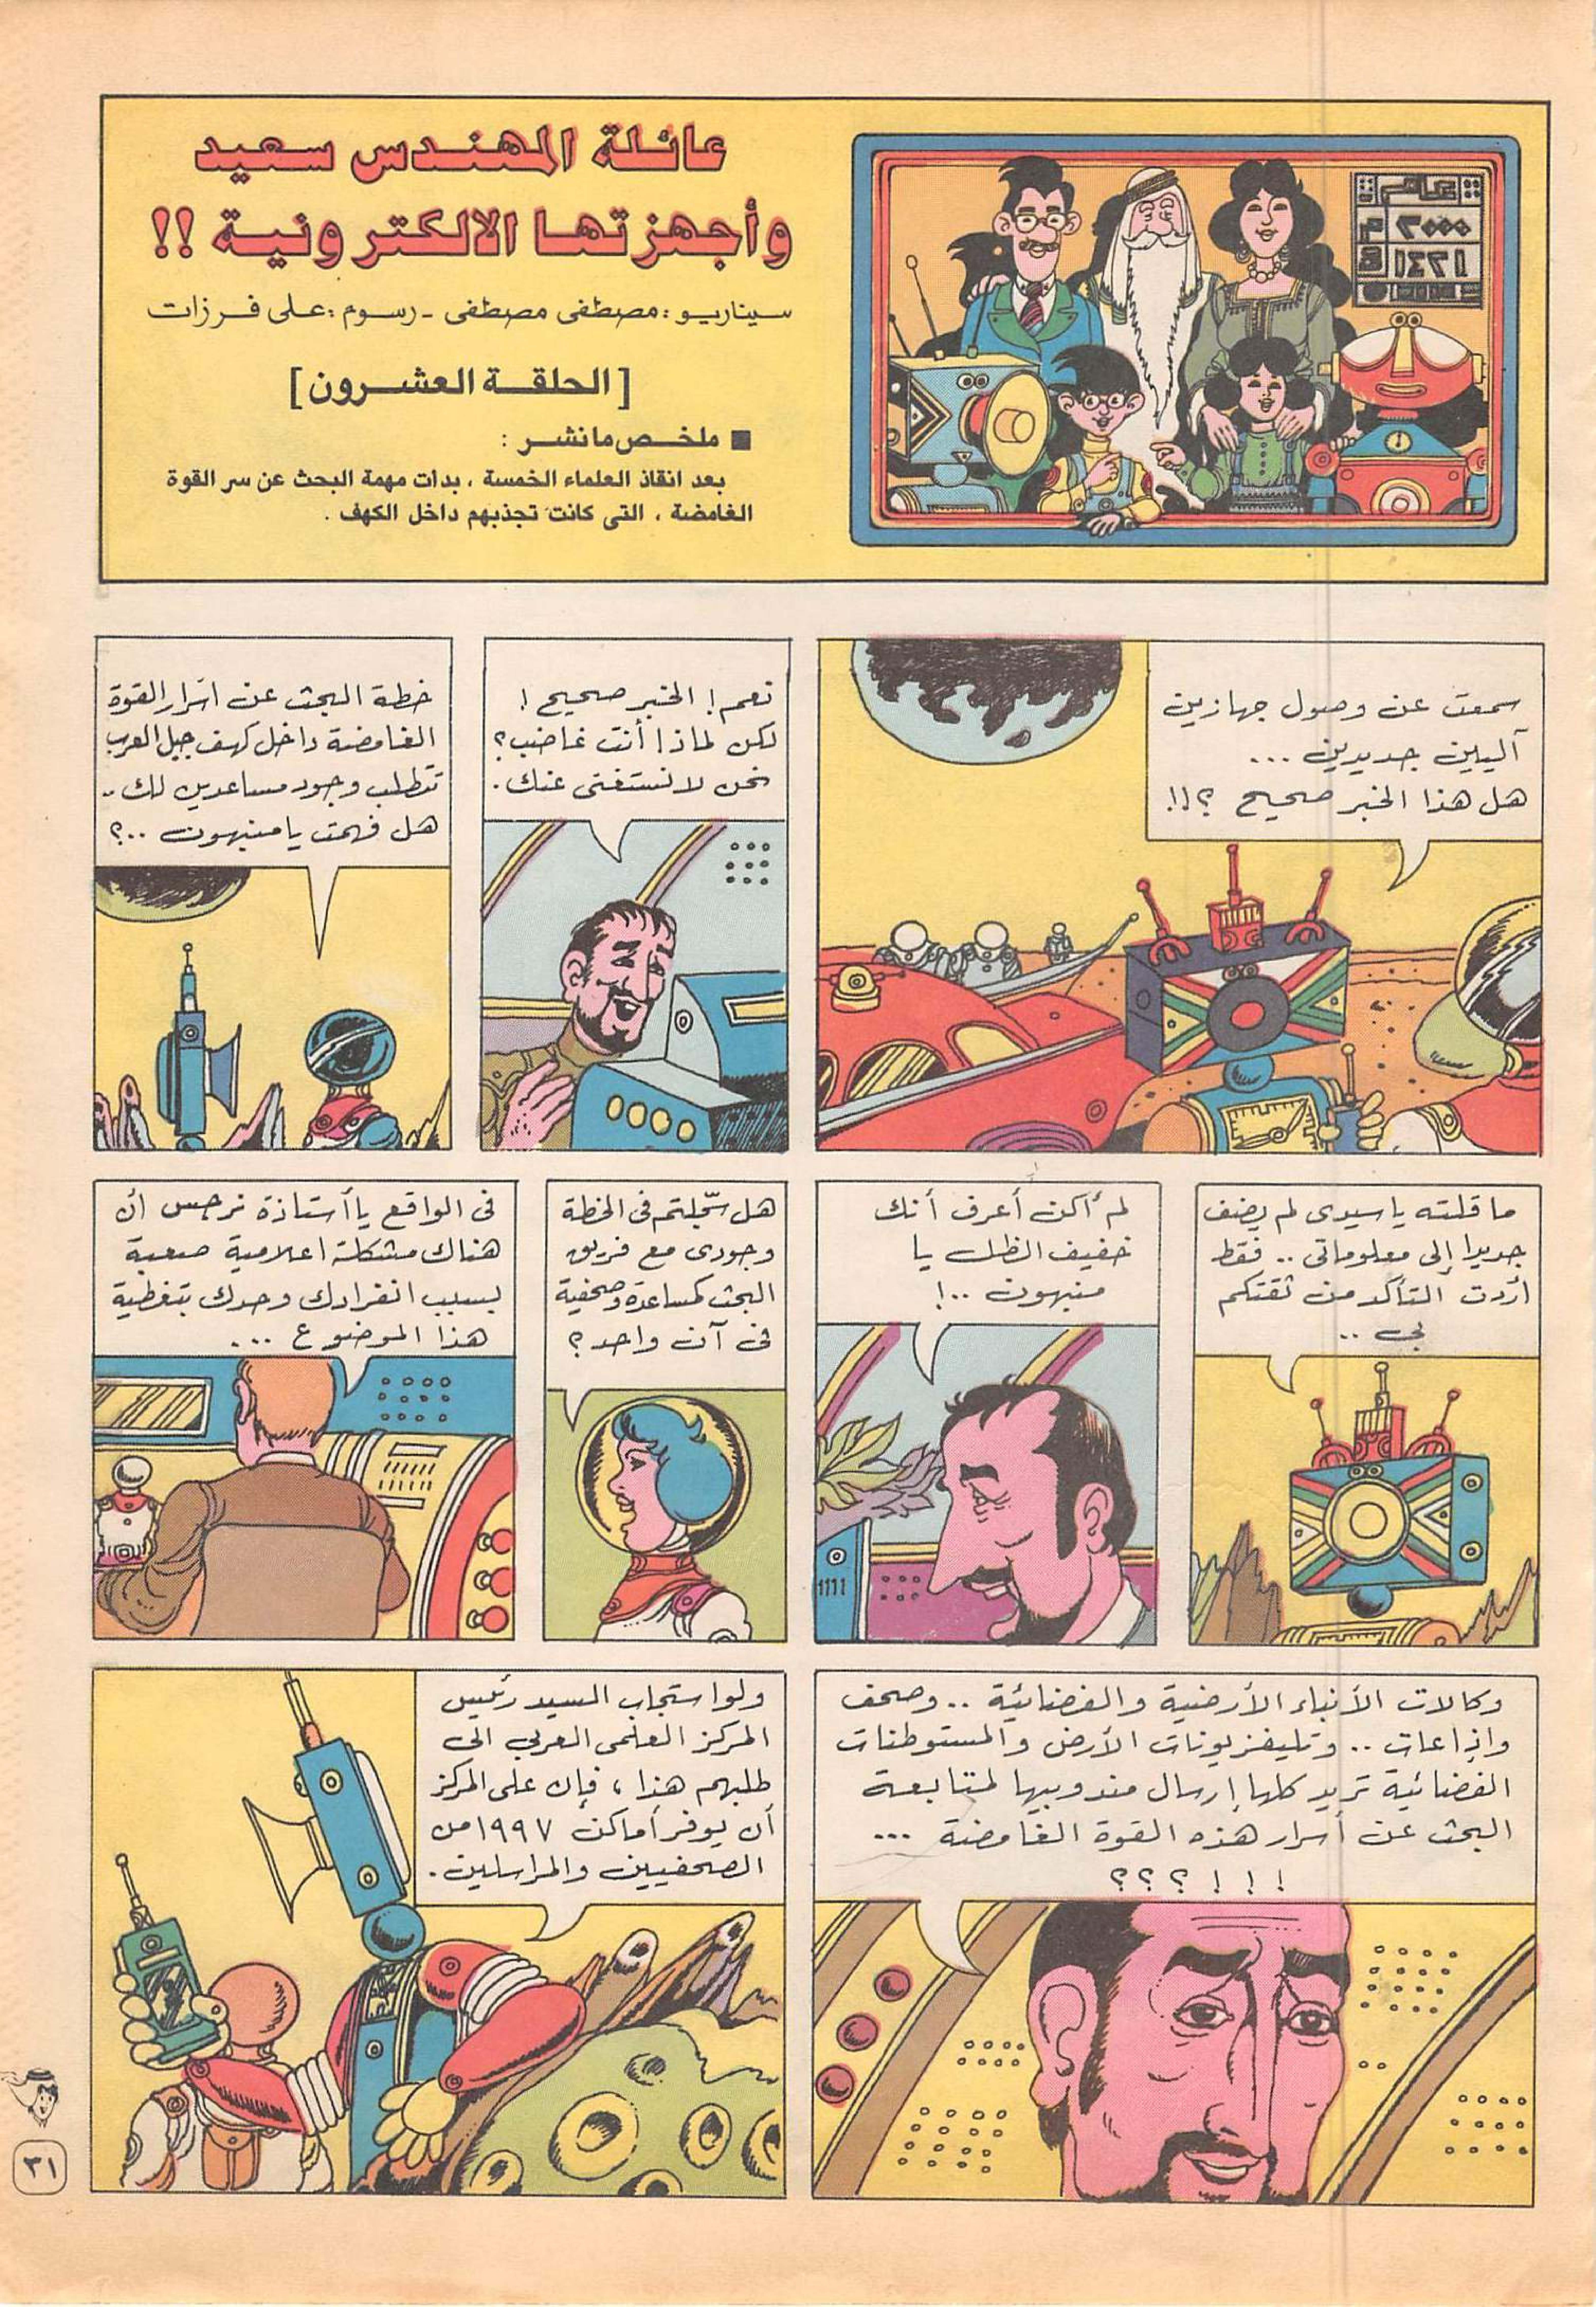 عائلة المهندس سعيد
وأجهزتها الالكترونية !!
سيناريو : مصطفى مصطفى - رسوم : على فرزات
[الحلقة العشرون]
■ ملخص ما نشر :
بعد انقاذ العلماء الخمسة ، بدأت مهمة البحث عن سر القوة
الغامضة ، التى كانت تجذبهم داخل الكهف .
عام
٢٠٠٠ م
١٤٢١ هـ
سمعت عن وصول جهازين
آليين جديدين ...
هل هذا الخبر صحيح ؟!!
نعم ! الخبر صحيح !
لكن لماذا أنت غاضب ؟
نحن لا نستغنى عنك .
خطة البحث عن أسرار القوة
الغامضة داخل كهف جبل العرب
تتطلب وجود مساعدين لك ..
هل فهمت يا منبهون ..؟
ما قلته يا سيدى لم يضف
جديدا إلى معلوماتى .. فقط
أردت التأكد من ثقتكم
بى ..
لم أكن أعرف أنك
خفيف الظل يا
منبهون ..!
هل سجّلتم فى الخطة
وجودى مع فريق
البحث كمساعدة وصحفية
فى آن واحد ؟
فى الواقع يا أستاذة نرجس أن
هناك مشكلة اعلامية صعبة
بسبب انفرادك وحدك بتغطية
هذا الموضوع ...
وكالات الأنباء الأرضية والفضائية .. وصحف
وإذاعات .. وتليفزيونات الأرض والمستوطنات
الفضائية تريد كلها إرسال مندوبيها لمتابعة
البحث عن أسرار هذه القوة الغامضة ...
! ! ! ؟ ؟ ؟
ولو استجاب السيد رئيس
المركز العلمى العربى الى
طلبهم هذا ، فإن على المركز
أن يوفر أماكن ١٩٩٧ من
الصحفيين والمراسلين .
٣١